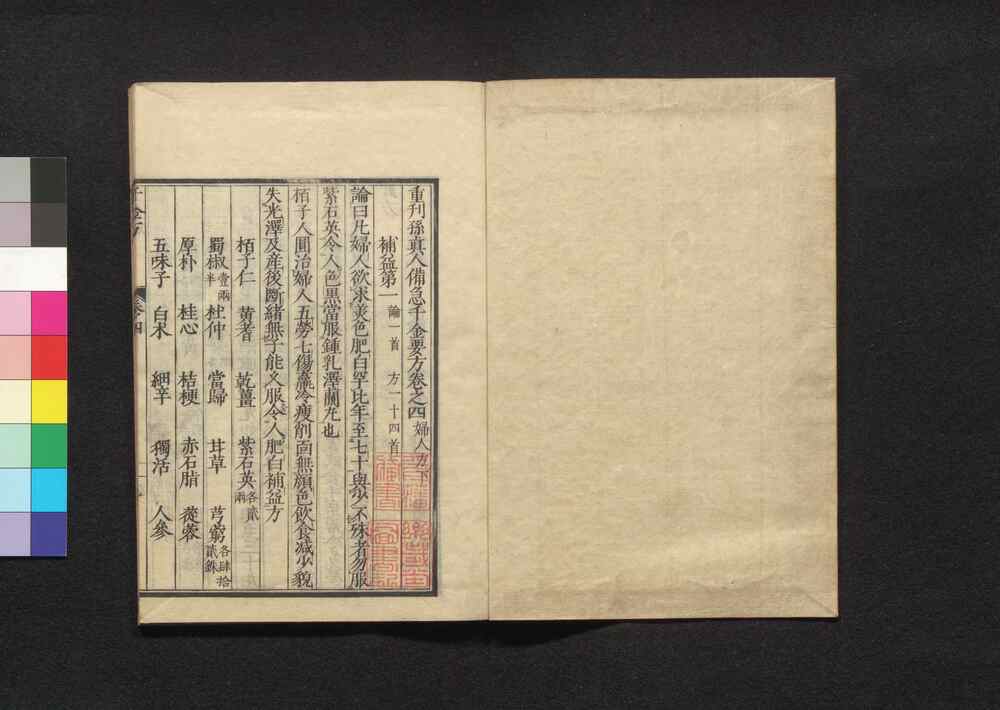 重刊孫真人備急千金要方卷之四 婦人方下
補益第一 論一首 方一十四首
論曰凡婦人欲求美色肥白罕比年至七十與少不殊者勿服
紫石英令人色黑當服鍾乳澤蘭丸也
栢子人圓治婦人五勞七傷羸冷瘦削面無顔色飲食减少貌
失光澤及産後斷緒無子能久服令人肥白補益方
栢子仁 黄耆 乾薑 紫石英各貳兩
蜀椒壹兩半 杜仲 當歸 甘草 芎藭各肆拾貳銖
厚朴 桂心 桔梗 赤石脂 蓯蓉
五味子 白朮 細辛 獨活 人參